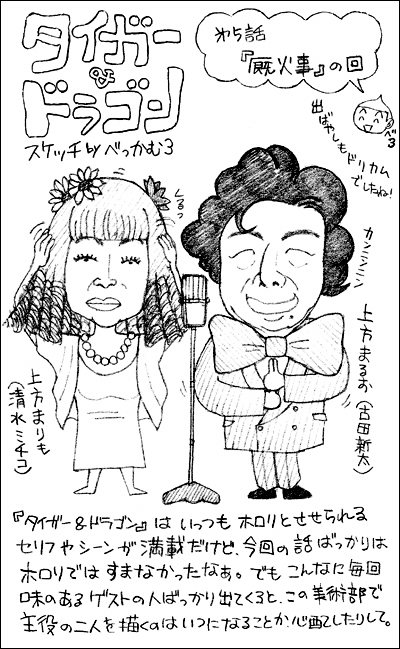 タイガー
&
ドラゴン
スケッチ by べっかむ3
第5話
『厩火事』の回
出ばやしも
ドリカム
でしたね!
べ3
くるっ
カンニンニン
上方まりも
(清水ミチコ)
上方まるお(古田新太)
『タイガー&ドラゴン』はいっつもホロリとさせられる
セリフやシーンが満載だけど、今回の話ばっかりは
ホロリではすまなかったなぁ。でもこんなに毎回
味のあるゲストの人ばっかり出てくると、この美術部で
主役の二人を描くのはいつになることか心配したりして。